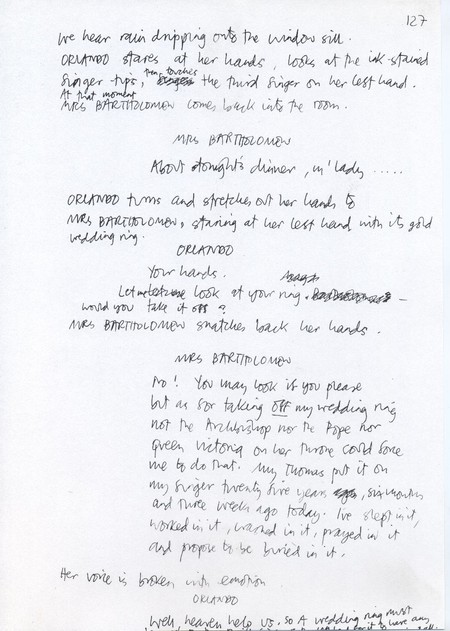 127
we hear rain dripping onto the window sill.
ORLANDO stares at her hands, looks at the ink-stained
finger tips, then touches the third finger on her left hand.
At that moment
MRS BARTHOLOMEW comes back into the room.
MRS BARTHOLOMEW
About tonight's dinner, m'lady .....
ORLANDO turns and stretches out her hands to
MRS BARTHOLOMEW, staring at her left hand with its gold
wedding ring.
ORLANDO
Your hands.
Let me look at your ring. –
would you take it off ?
MRS BARTHOLOMEW snatches back her hands.
MRS BARTHOLOMEW
No! You may look if you please
but as for taking off my wedding ring
not the Archbishop nor the Pope nor
Queen Victoria on her throne could force
me to do that. My Thomas put it on
my finger twenty five years, six months
and three weeks ago today. I've slept in it,
worked in it, washed in it, prayed in it
and propose to be buried in it.
Her voice is broken with emotion
ORLANDO
Well, heaven help us. So A wedding ring must